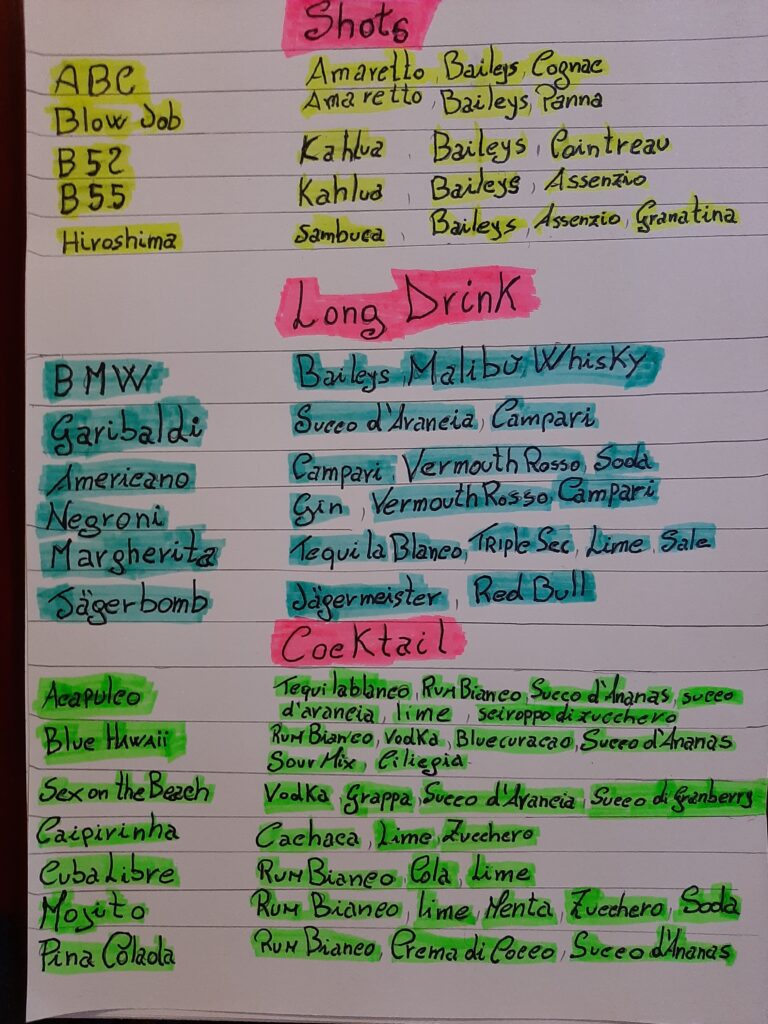 Shots
ABC Amaretto, Baileys, Cognac
Blow Job Amaretto, Baileys, Panna
B52 Kahlua, Baileys, Cointreau
B55 Kahlua, Baileys, Assenzio
Hiroshima Sambuca, Baileys, Assenzio, Granatina
Long Drink
BMW Baileys, Malibù, Whisky
Garibaldi Succo d'Arancia, Campari
Americano Campari, Vermouth Rosso, Soda
Negroni Gin, Vermouth Rosso, Campari
Margherita Tequila Blanco, Triple Sec, Lime, Sale
Jägerbomb Jägermeister, Red Bull
Cocktail
Acapulco Tequilablanco, Rum Bianco, Succo d'Ananas, succo
d'arancia, lime, sciroppo di zucchero
Blue Hawaii Rum Bianco, Vodka, Bluecuracao, Succo d'Ananas
Sour Mix, Ciliegia
Sex on the Beach Vodka, Grappa, Succo d'Arancia, Succo di Granberry
Caipirinha Cachaca, Lime, Zucchero
Cuba Libre Rum Bianco, Cola, Lime
Mojito Rum Bianco, lime, Menta, Zucchero, Soda
Pina Colada Rum Bianco, Crema di Cocco, Succo d'Ananas